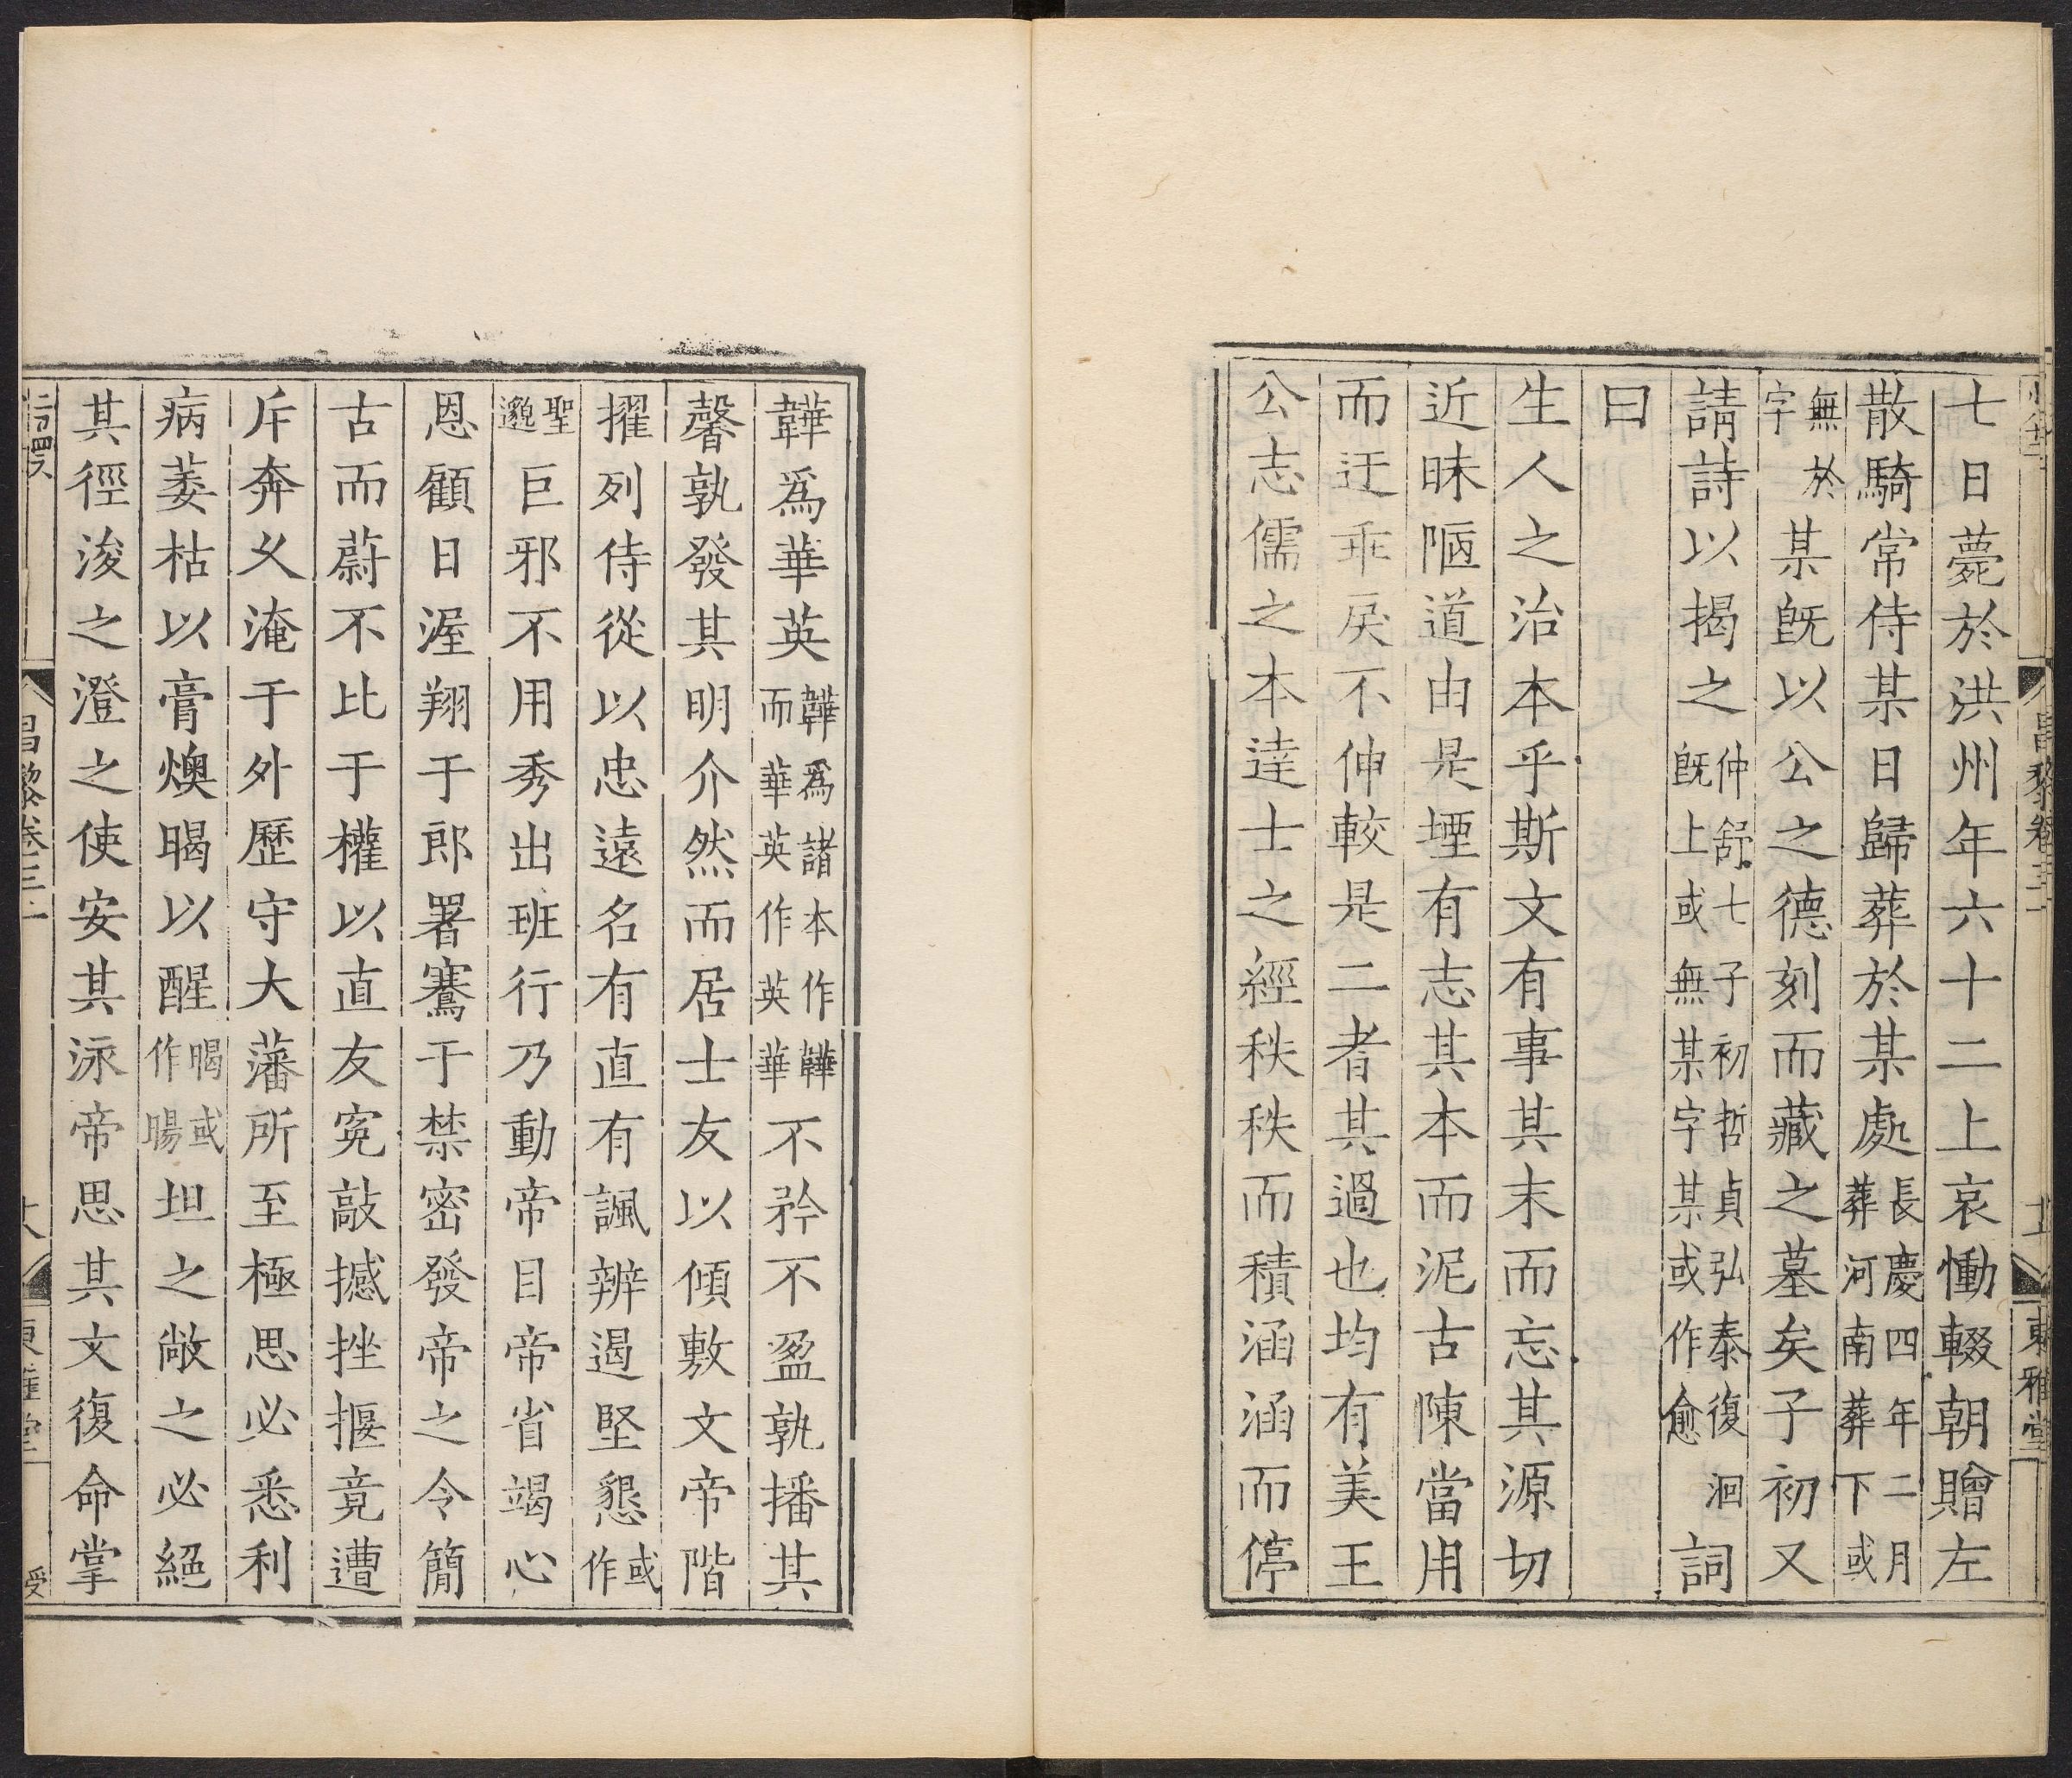 七日薨於洪州年六十二上哀慟輟朝贈左
散騎常侍某日歸葬於某處長慶四年二月葬河南葬下或
無於字某既以公之德刻而藏之墓矣子初又
請詩以揭之仲舒七子初哲貞弘泰復洄既上或無某字某或作愈詞
曰
生人之治本乎斯文有事其末而忘其源切
近昧陋道由是堙有志其本而泥古陳當用
而迂乖戾不伸較是二者其過也均有美王
公志儒之本達士之經秩秩而積涵涵而停
韡爲華英韡爲諸本作韡而華英作英華不矜不盈孰播其
馨孰發其明介然而居士友以傾敷文帝階
擢列侍從以忠遠名有直有諷辨遏堅懇或作
聖邈巨邪不用秀出班行乃動帝目帝省竭心
恩顧日渥翔于郎署騫于禁密發帝之令簡
古而蔚不比于權以直友冤敲撼挫揠竟遭
斥奔乆淹于外歷守大藩所至極思必悉利
病萎枯以膏燠暍以醒暍或作暘坦之敞之必絕
其徑浚之澄之使安其泳帝思其文復命掌
昌黎卷三十一
東雅堂